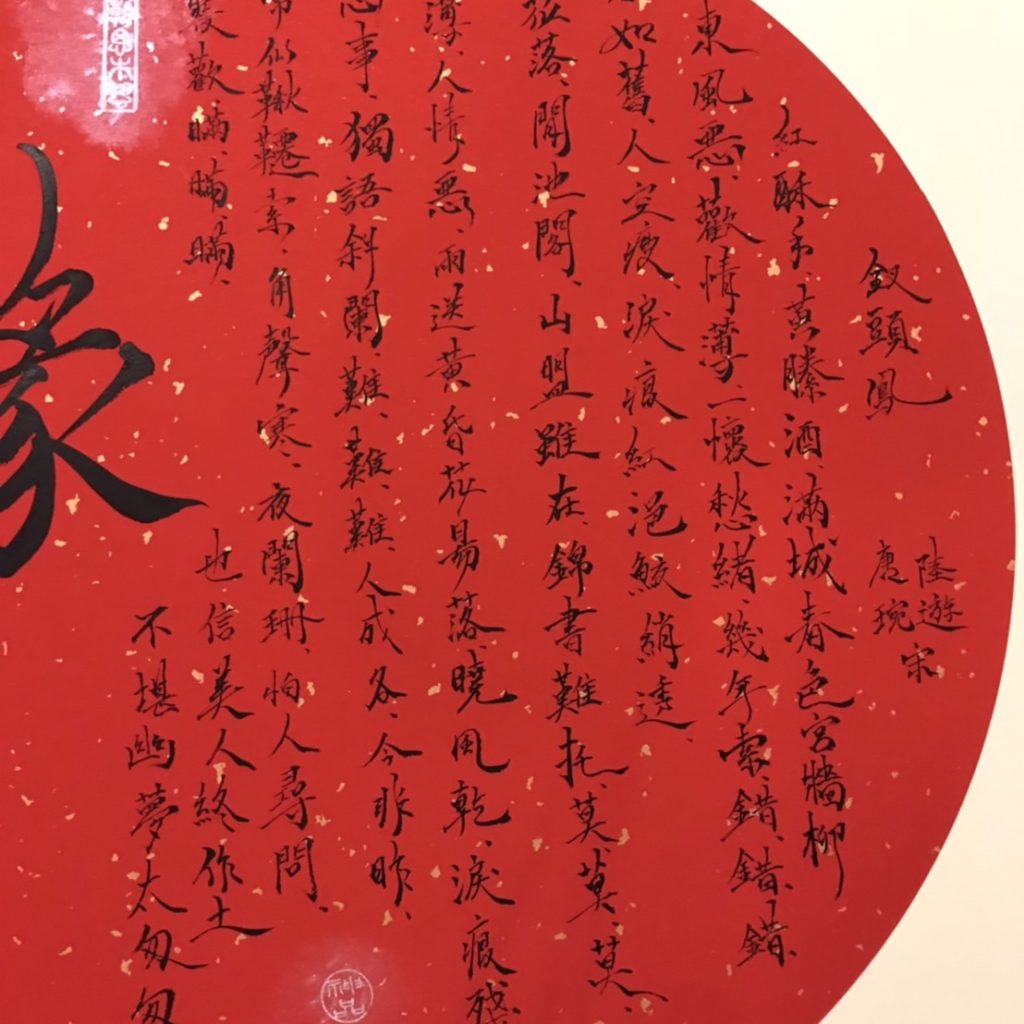 釵頭鳳
陸遊 宋
唐琬
紅酥手、黃縢酒、滿城春色宮牆柳
東風惡、歡情薄、一懷愁緒、幾年索、錯、錯、錯
如舊、人空瘦、淚痕紅浥鮫綃透、
花落、閒池閣、山盟雖在、錦書難托、莫、莫、莫、
薄、人情惡、雨送黃昏花易落、曉風乾、淚痕殘
事、獨語斜闌、難、難、難、人成各、今非昨、
常似鞦韆索、角聲寒、夜闌珊、怕人尋問、
歡、瞞、瞞、瞞、
也信美人終作土
不堪幽夢太匆匆